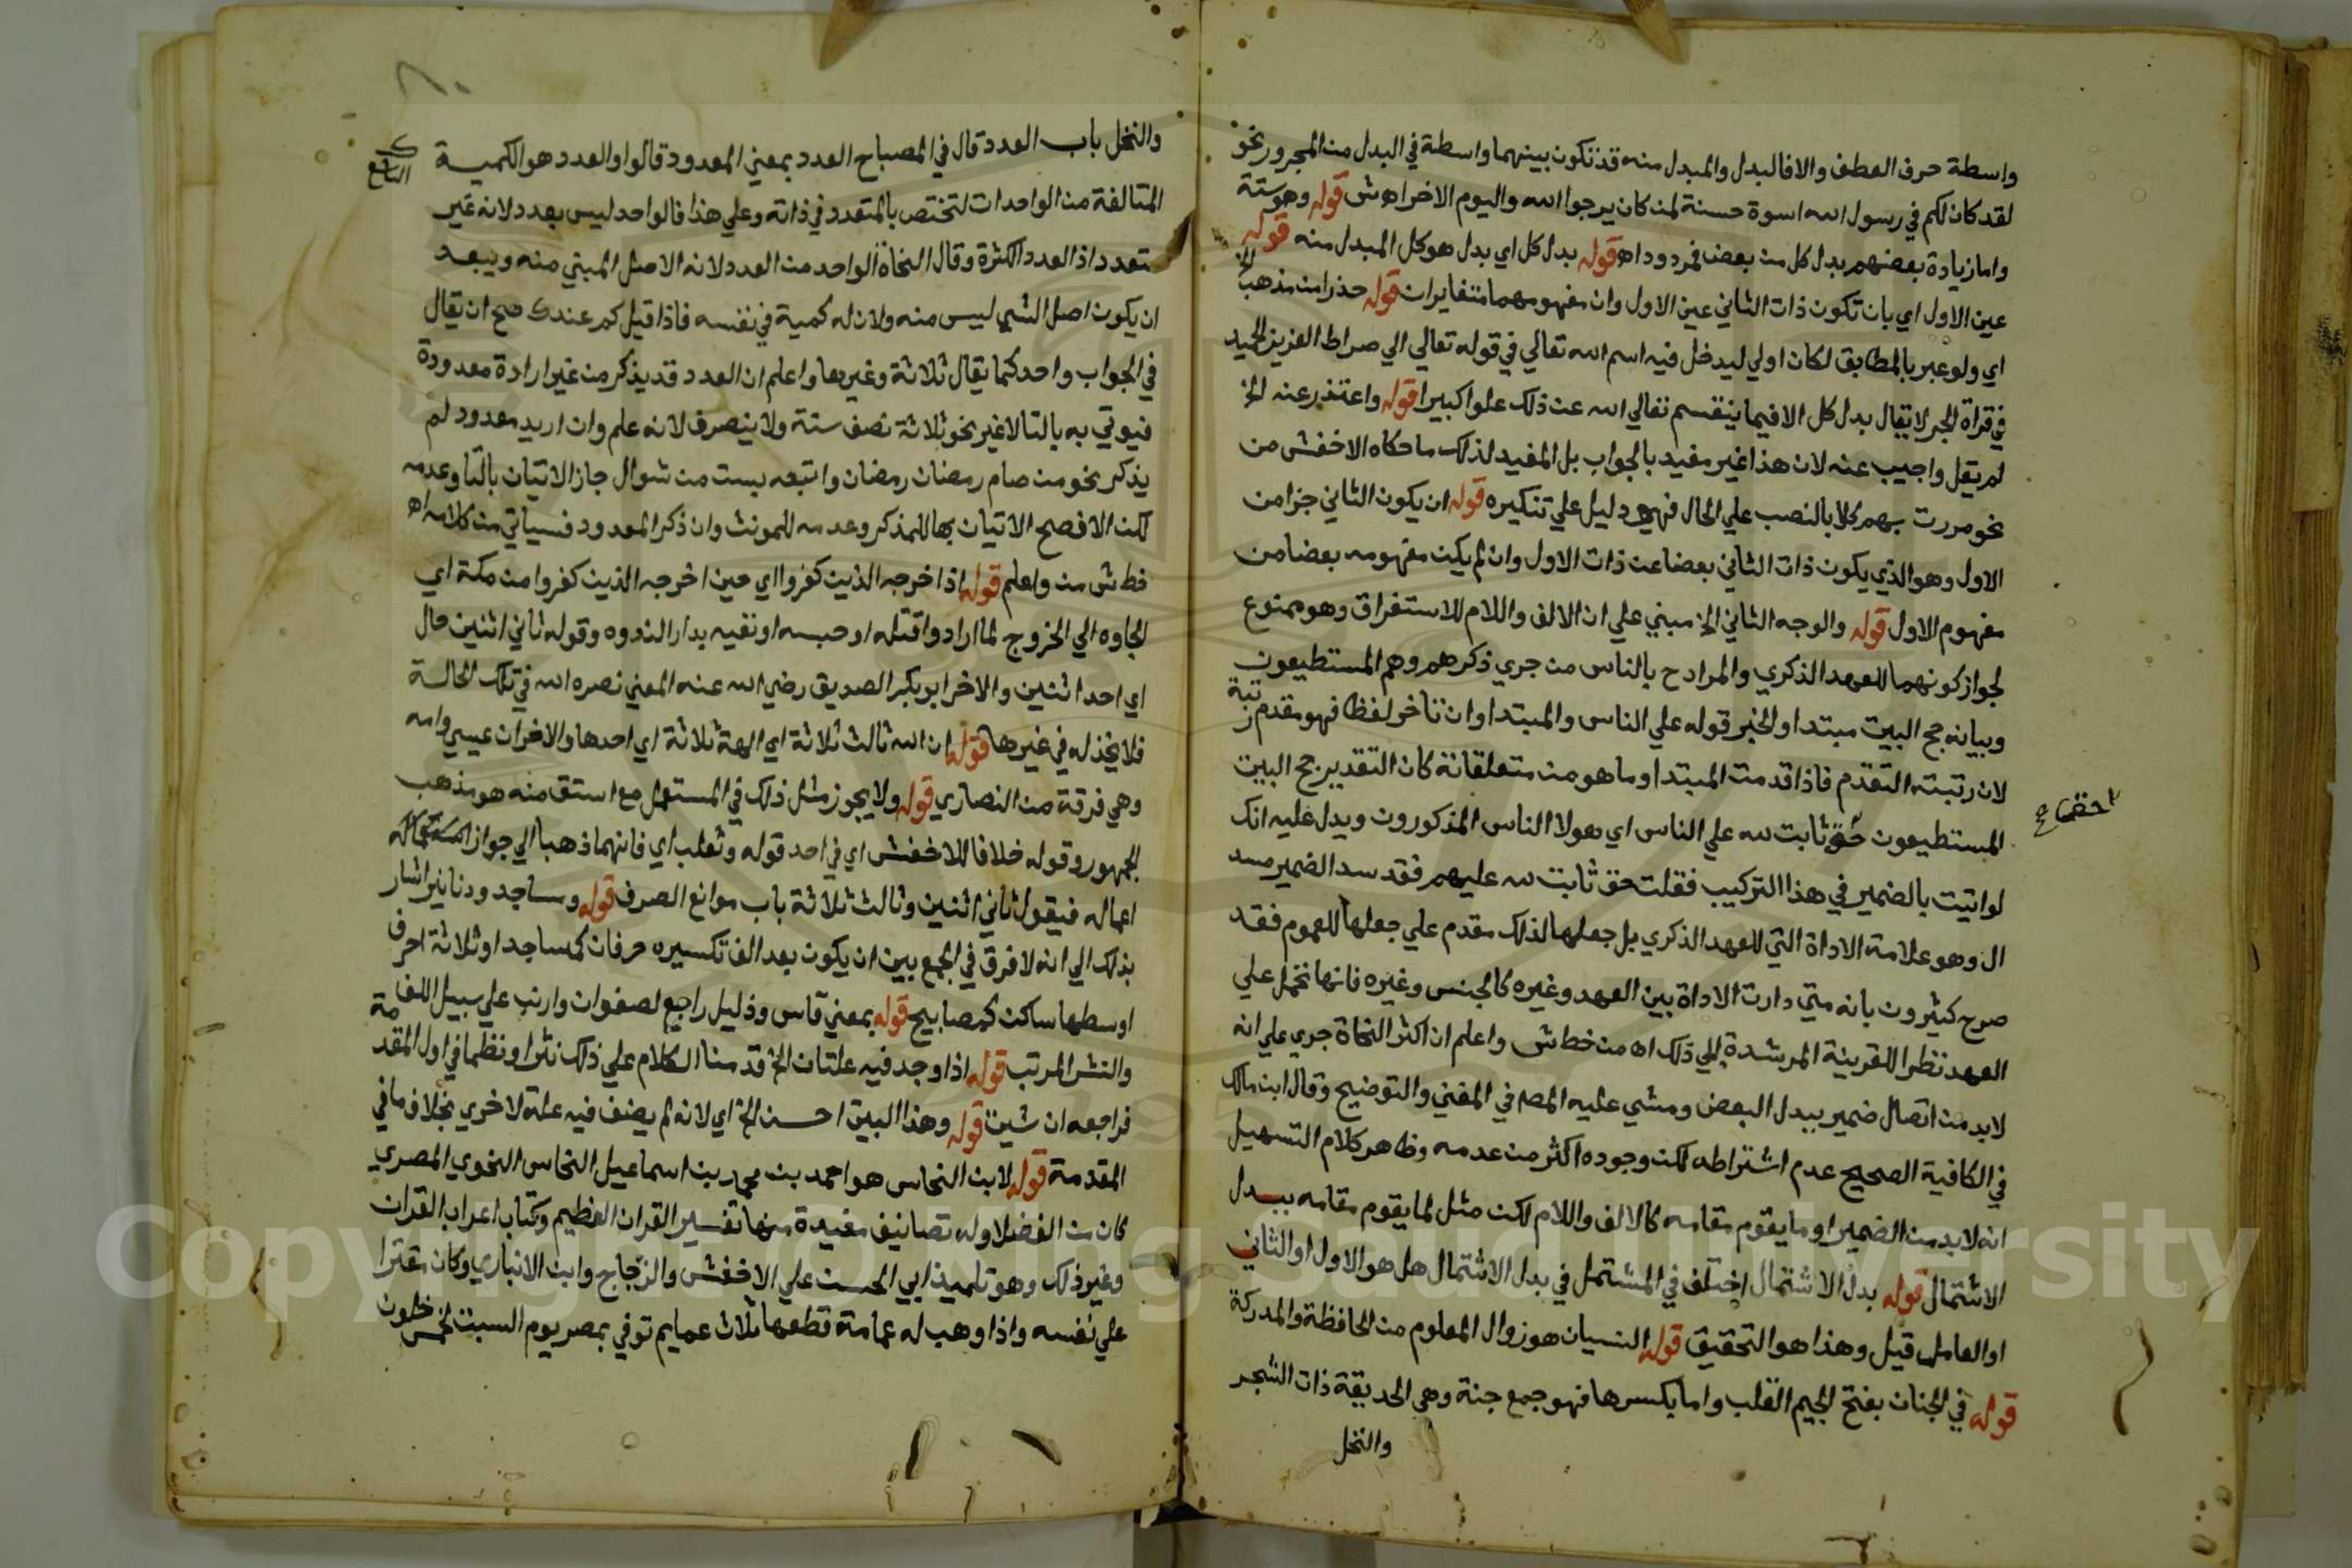 واسطة حرف العطف والا فالبدل والمبدل منه قد تكون بينهما واسطة في البدل من المجرور نحو
لقد كان لكم في رسول الله اسوة حسنة لمن كان يرجوا الله واليوم الاخر اه ش قوله وهو ستة
واما زيادة بعضهم بدل كل من بعض فمردود اه قوله بدل كل اي بدل هو كل المبدل منه قوله
عين الاول اي بان تكون ذات الثاني عين الاول وان مفهومهما متغايران قوله حذرا من مذهب الخ
اي ولو عبر بالمطابق لكان اولي ليدخل فيه اسم الله تعالي في قوله تعالي الي صراط العزيز الحميد
في قراة الجر لا يقال بدل كل الا فيما ينقسم تعالي الله عن ذلك علوا كبيرا قوله واعتذر عنه الخ
لم يقل واجيب عنه لان هذا غير مفيد بالجواب بل المفيد لذلك ما حكاه الاخفش من
نحو مررت بهم كلا بالنصب علي الحال فهي دليل علي تنكيره قوله ان يكون الثاني جزا من
الاول وهو الذي يكون ذات الثاني بعضا عن ذات الاول وان لم يكن مفهومه بعضا من
مفهوم الاول قوله والوجه الثاني الخ مبني علي ان الالف واللام للاستغراق وهو ممنوع
لجواز كونهما للعهد الذكري والمراد ح بالناس من جري ذكرهم وهم المستطيعون
وبيانه حج البيت مبتدا والخبر قوله علي الناس والمبتدا وان تاخر لفظا فهو مقدم رتبة
لان رتبته التقدم فاذا قدمت المبتدا وما هو من متعلقاته كان التقدير حج البيت
المستطيعون حق ثابت لله علي الناس اي هولا الناس المذكورون ويدل عليه انك
لو اتيت بالضمير في هذا التركيب فقلت حق ثابت لله عليهم فقد سد الضمير مسد
ال وهو علامة الاداة التي للعهد الذكري بل جعلها لذلك مقدم علي جعلها للعموم فقد
صرح كثيرون بانه متي دارت الاداة بين العهد وغيره كالجنس وغيره فانها تحمل علي
العهد نظرا للقرينة المرشدة الي ذلك اه من خط ش واعلم ان اكثر النحاة جري علي انه
لابد من اتصال ضمير ببدل البعض ومشي عليه المص في المغني والتوضيح وقال ابن مالك
في الكافية الصحيح عدم اشتراطه لكن وجوده اكثر من عدمه وظاهر كلام التسهيل
انه لابد من الضمير او ما يقوم مقامه كالالف واللام لكن مثل لما يقوم مقامه ببدل
الاشتمال قوله بدل الاشتمال اختلف في المشتمل في بدل الاشتمال هل هو الاول او الثاني
او العامل قيل وهذا هو التحقيق قوله النسيان هو زوال المعلوم من الحافظة والمدركة
قوله في الجنان بفتح الجيم القلب واما بكسرها فهو جمع جنة وهي الحديقة ذات الشجر
والنخل
والنخل باب العدد قال في المصباح العدد بمعني المعدود قالوا والعدد هو الكمية
المتالفة من الواحدات لتختص بالمتعدد في ذاته وعلي هذا فالواحد ليس بعدد لانه غير
متعدد اذ العدد الكثرة وقال النحاة الواحد من العدد لانه الاصل المبني منه ويبعد
ان يكون اصل الشي ليس منه ولان له كمية في نفسه فاذا قيل كم عندك صح ان يقال
في الجواب واحد كما يقال ثلاثة وغيرها واعلم ان العدد قد يذكر من غير ارادة معدودة
فيوتي به بالتا لا غير نحو ثلاثة نصف ستة ولا ينصرف لانه علم وان اريد معدود لم
يذكر نحو من صام رمضان رمضان واتبعه بست من شوال جاز الاتيان بالتا وعدمه
لكن الافصح الاتيان بها للمذكر وعدمه للمونث وان ذكر المعدود فسياتي من كلامه اه
خط ش من واعلم قوله اذ اخرجه الذين كفروا اي حين اخرجه الذين كفروا من مكة اي
الجاوه الي الخروج لما ارادوا قتله او حبسه او نفيه بدار الندوه وقوله ثاني اثنين حال
اي احد اثنين والاخر ابو بكر الصديق رضي الله عنه المعني نصره الله في تلك الحالة
فلا يخذله في غيرها قوله ان الله ثالث ثلاثة اي الهة ثلاثة اي احدها والاخران عيسي وامه
وهي فرقة من النصاري قوله ولا يجوز مثل ذلك في المستعمل مع استق منه هو مذهب
الجمهور وقوله خلافا للاخفش اي في احد قوله وثعلب اي فانهما ذهبا الي جواز
اعماله فيقول ثاني اثنين وثالث ثلاثة باب موانع الصرف قوله ومساجد ودنانير اشار
بذلك الي انه لا فرق في الجمع بين ان يكون بعد الف تكسيره حرفان كمساجد او ثلاثة احرف
اوسطها ساكن كمصابيح قوله بمعني قاس وذليل راجع لصفوان وارنب علي سبيل اللف
والنشر المرتب قوله اذا وجد فيه علتان الخ قد منا الكلام علي ذلك نثرا ونظما في اول المقدمة
فراجعه ان شيت قوله وهذا البيت احسن الخ اي لانه لم يضف فيه علة لاخري بخلاف ما في
المقدمة قوله لابن النحاس هو احمد بن محمد بن اسماعيل النحاس النحوي المصري
كان من الفضلا وله تصانيف مفيدة منها تفسير القران العظيم وكتاب اعراب القران
وغير ذلك وهو تلميذ ابي الحسن علي الاخفش والزجاج وابن الانباري وكان مقترا
علي نفسه واذا وهب له عمامة قطعها ثلاث عمايم توفي بمصر يوم السبت لخمس خلون
Copyright © King Saud University